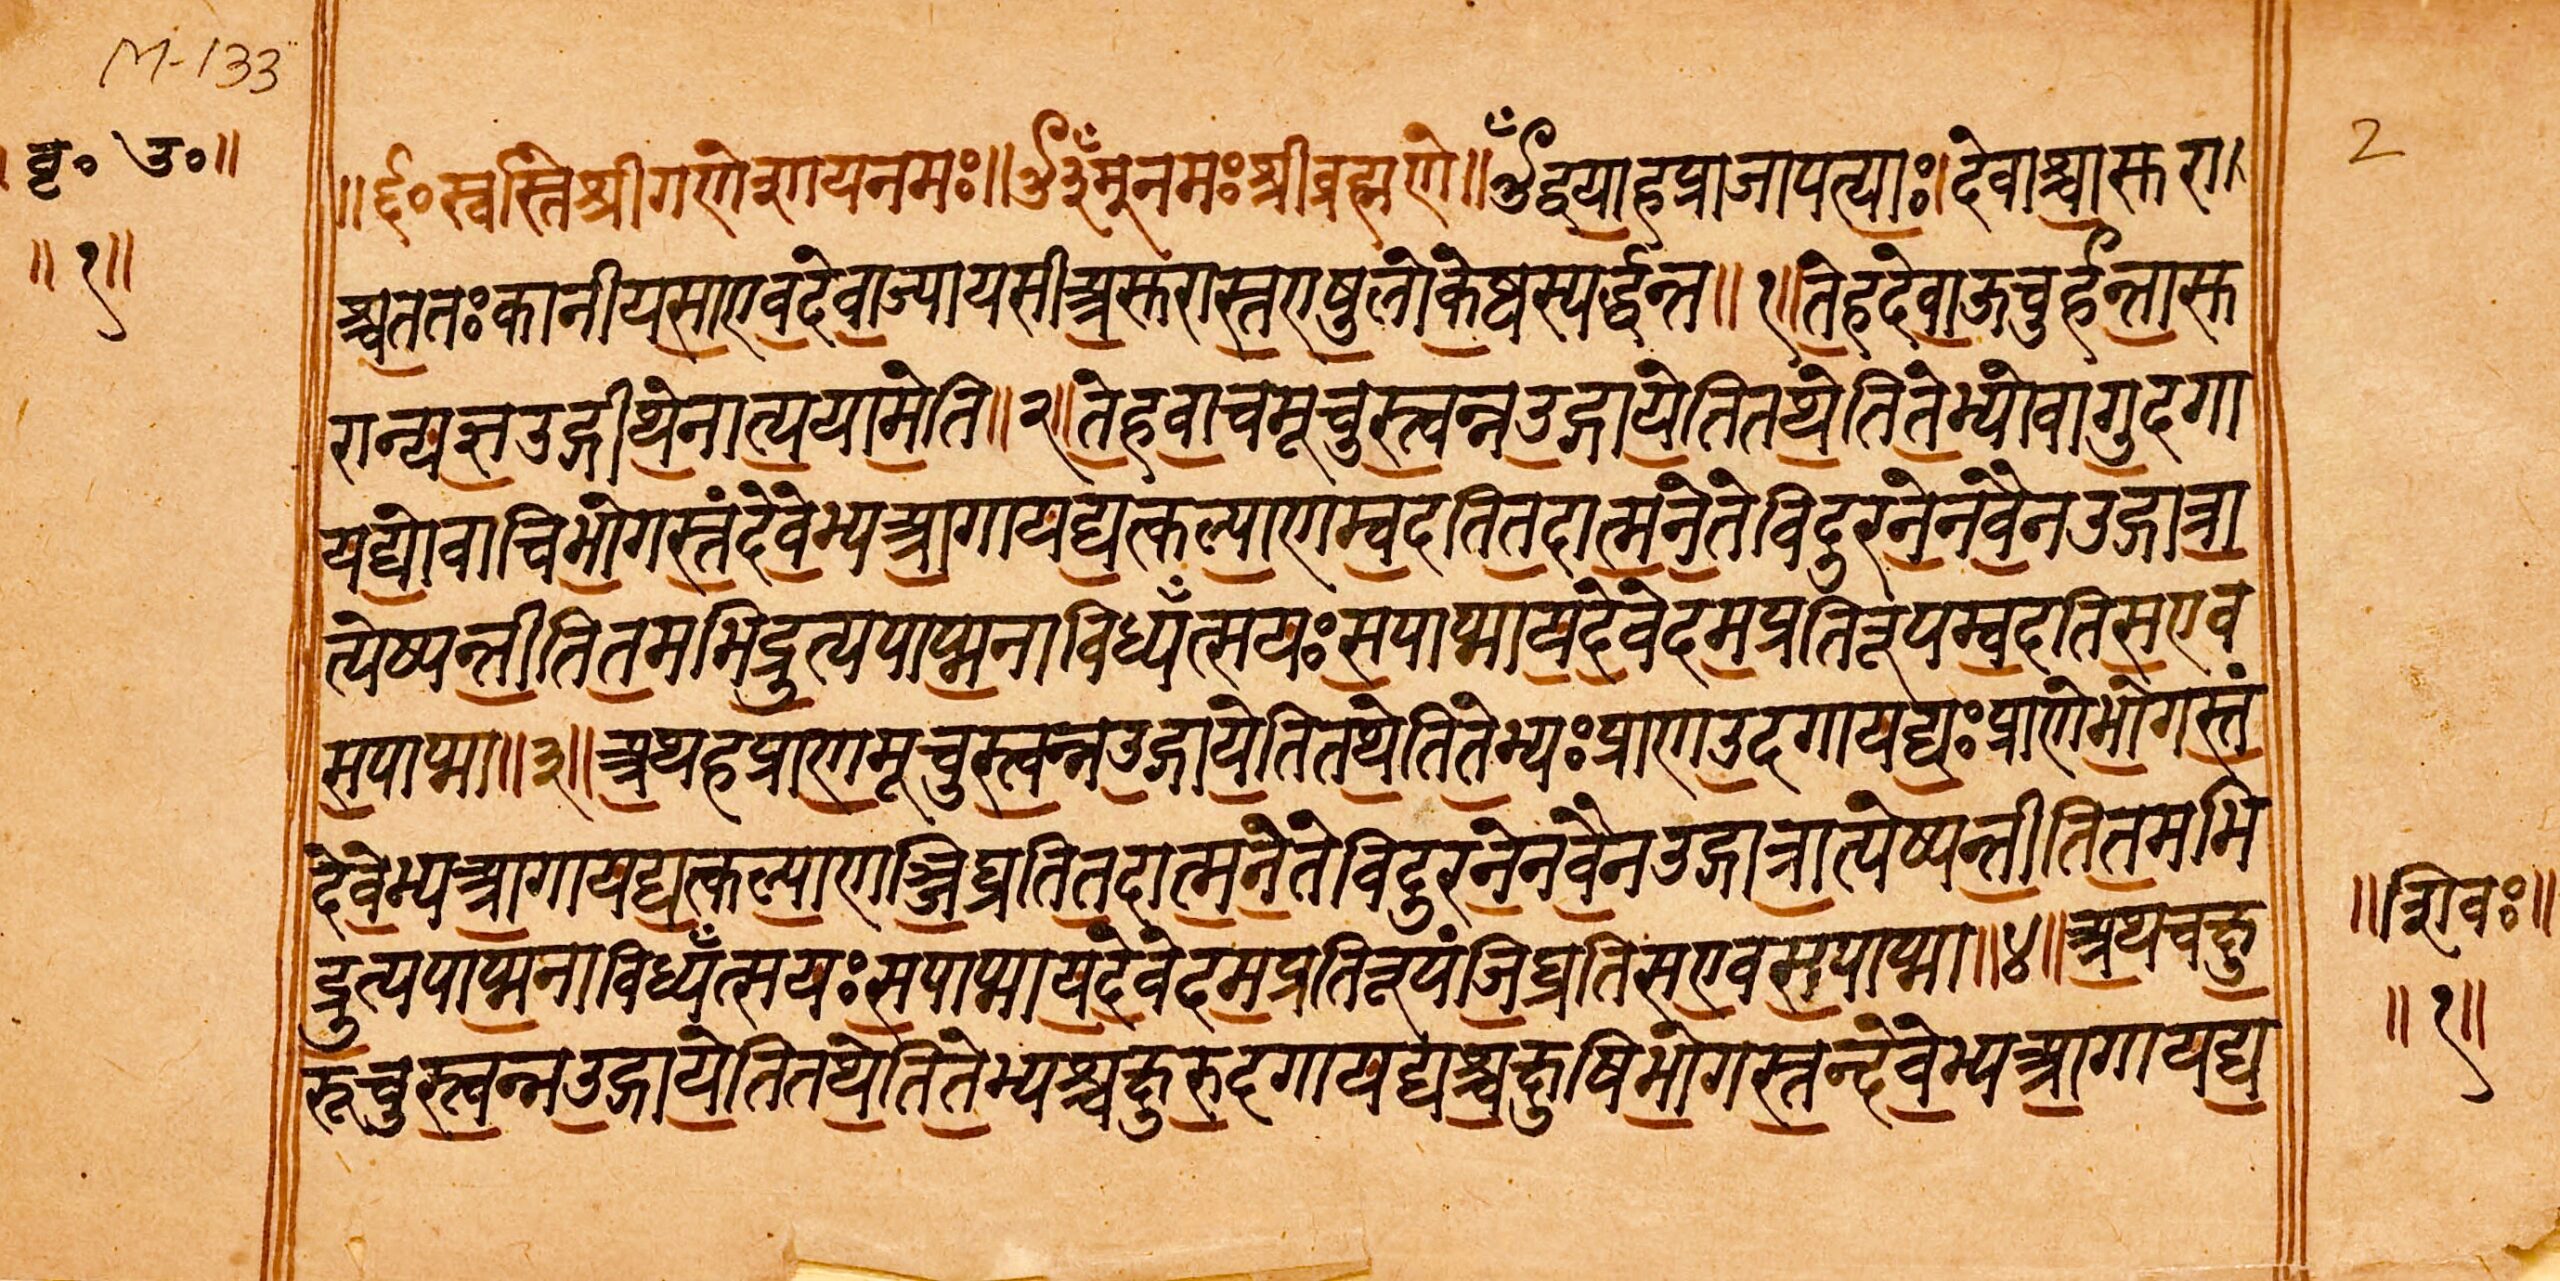 M-133
। बृ॰ उ॰॥
॥१॥
2
॥र्द॰स्वस्तिश्रीगणेशायनमः॥ॐनमःश्रीब्रह्मणे॥ॐद्वयाहप्राजापत्याः।देवाश्चासुरा।
श्चततःकानीयसाएवदेवाज्यायसीअसुरास्तएषुलोकेष्वस्पर्द्धन्त॥१॥तेहदेवाऊचुर्हन्तासु
रान्यज्ञउद्गीथेनात्ययामेति॥२॥तेहवाचमूचुस्त्वन्नउद्गायेतितथेतितेभ्योवागुदगा
यद्योवाचिभोगस्तंदेवेभ्यआगायद्यत्कल्याणम्वदतितदात्मनेतेविदुरनेनवैनउद्गात्रा
त्येष्यन्तीतितमभिद्रुत्यपाप्मनाविध्यँत्सयःसपाप्मायदेवेदमप्रतिरूपम्वदतिसएव
सपाप्मा॥३॥अथहप्राणमूचुस्त्वन्नउद्गायेतितथेतितेभ्यःप्राणउदगायद्यःप्राणेभोगस्तं
देवेभ्यआगायद्यत्कल्याणञ्जिघ्रतितदात्मनेतेविदुरनेनवैनउद्गात्रात्येष्यन्तीतितमभि
द्रुत्यपाप्मनाविध्यँत्सयःसपाप्मायदेवेदमप्रतिरूपंजिघ्रतिसएवसपाप्मा॥४॥अथचक्षु
रूचुस्त्वन्नउद्गायेतितथेतितेभ्यश्चक्षुरुदगायद्यश्चक्षुषिभोगस्तन्देवेभ्यआगायद्य
॥शिवः॥
॥१॥